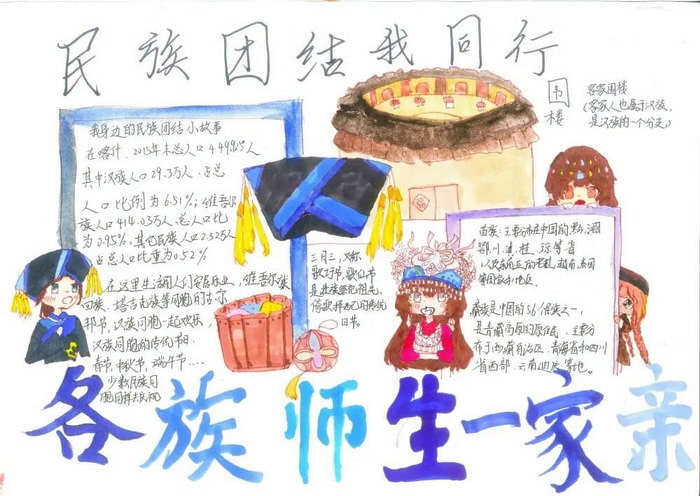 民族团结我同行
围楼
客家围楼
(客家人也属于汉族,
是汉族的一个分支)
我身边的民族团结小故事
在喀什,2015年末总人口449915人
其中汉族人口29.3万人,占总
人口比例为6.51%;维吾尔
族人口414.03万人,总人口比
为0.95%,其它民族人口2.325万人
占总人口比重为0.52%
在这里生活的人们安居乐业,维吾尔族
回族、塔吉克族等同胞的古尔
邦节,汉族同胞一起欢乐,
汉族同胞的传统节日
春节、中秋节、端午节....
少数民族同
胞同样去庆祝
三月三,又称
歌圩节,歌仙节
是壮族祭祀祖先,
倚歌择配的传统
日节。
苗族:主要分布在中国的黔、湘
鄂、川、滇、桂、琼等省
以及东南亚的老挝、越南、泰国
等国家和地区。
藏族是中国的56个民族之一,
是青藏高原的原住民,主要分
布于西藏自治区、青海省和四川
省西部、云南迪庆等地。
各族师生一家亲